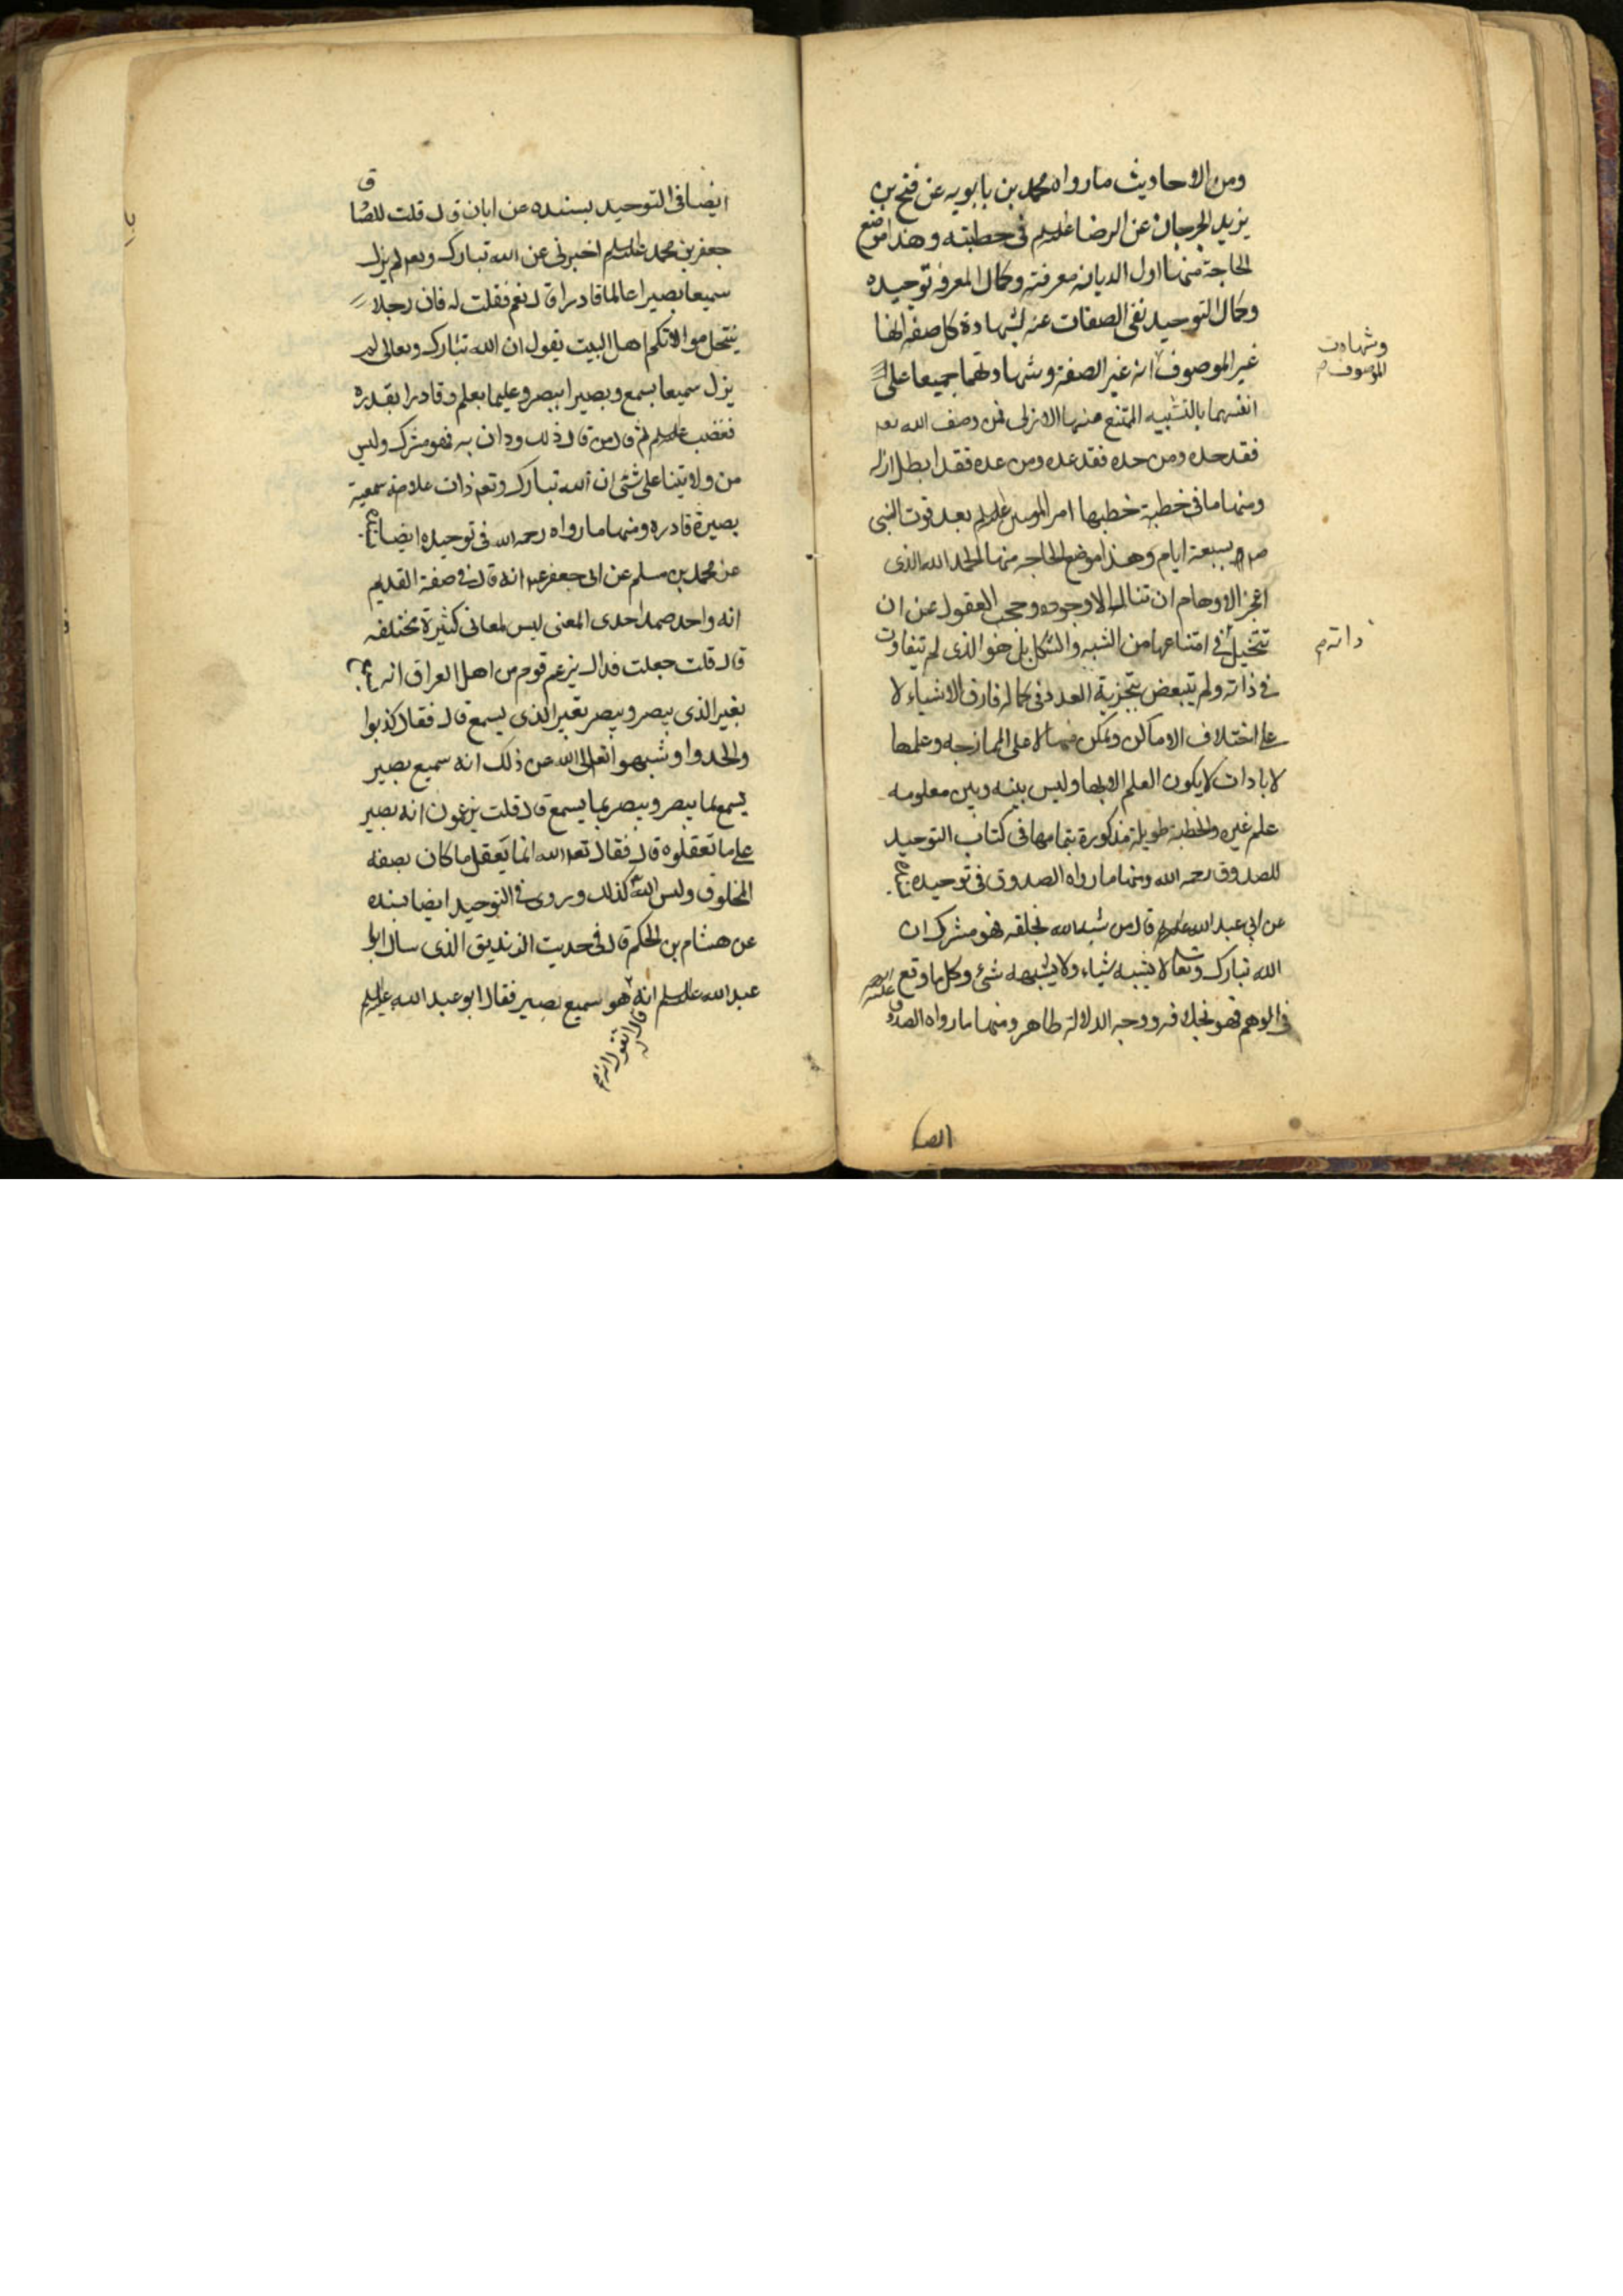 ومن الاحاديث ما رواه محمد بن بابويه عن فتح بن
يزيد الجرجاني عن الرضا علیه السلم في خطبته وهذا موضع
الحاجة منها اول الديانه معرفته وكمال المعرفه توحيده
وكمال التوحيد نفى الصفات عنه لشهادة كل صفه انها
غير الموصوف انه غير الصفة وشهادتهما جميعا على
وشهادت
الموصوف م
انفسهما بالتشبيه الممتنع منها الازلى فمن وصف الله تعه
فقد حده ومن حده فقد عده ومن عده فقد ابطل ازله
ومنها ما في خطبة خطبها امير المومنين علیه السلم بعد فوت النبى
بسبعة ايام وهذا موضع الحاجه منها الحمد لله الذى
اعجز الاوهام ان تنال الا وجوده وحجب العقول عن ان
تتخيل في امتناعها من الشبه والشكل بل هو الذى لم يتفاوت
ذاته م
في ذاته ولم يتبعض بتجزية العدد فى كماله فارق الاشياء لا
على اختلاف الاماكن وتمكن منها لا على الممازجه وعلمها
لا بادات لا يكون العلم الا بها وليس بينه وبين معلومه
علم غيره والخطبة طويلة مذكورة بتمامها فى كتاب التوحيد
للصدوق رحمه الله ومنها ما رواه الصدوق فى توحيده
عن ابي عبد الله علیه السلم قال من شبه الله بخلقه فهو مشرك ان
الله تبارك وتعالى لا يشبه شياء ولا يشبهه شئ وكل ما وقع
في الوهم فهو بخلافه ووجه الدلالة ظاهر ومنها ما رواه الصدوق
ايضا فى التوحيد بسنده عن ابان قال قلت للصادق
جعفر بن محمد علیه السلم اخبرنى عن الله تبارك وتعه لم يزل
سميعا بصيرا عالما قادرا قال نعم فقلت له فان رجلا
ينتحل موالاتكم اهل البيت يقول ان الله تبارك وتعالى لم
يزل سميعا بسمع وبصيرا ببصر وعليما بعلم وقادرا بقدره
فغضب علیه السلم ثم قال من قال ذلك ودان به فهو مشرك وليس
من ولايتنا على شئ ان الله تبارك وتعه ذات علامة سمعية
بصيرة قادره ومنها ما رواه رحمه الله فى توحيده ايضا
عن محمد بن مسلم عن ابى جعفر عم انه قال في صفة القديم
انه واحد صمد احدى المعنى ليس لمعانى كثيرة مختلفه
قال قلت جعلت فداك يزعم قوم من اهل العراق انه
بغير الذى يبصر ويبصر بغير الذى يسمع قال فقال كذبوا
والحدوا وشبهوا تعالى الله عن ذلك انه سميع بصير
يسمع بما يبصر ويبصر بما يسمع قال قلت يزعمون انه بصير
على ما تعقلوه قال فقال تعه الله انما يعقل ما كان بصفه
المخلوق وليس الله كذلك وروى في التوحيد ايضا بسنده
عن هشام بن الحكم قال فى حديث الزنديق الذى سال ابا
عبد الله علیه السلم انه هو سميع بصير فقال ابو عبد الله علیه السلم
قال له اتقول انه م